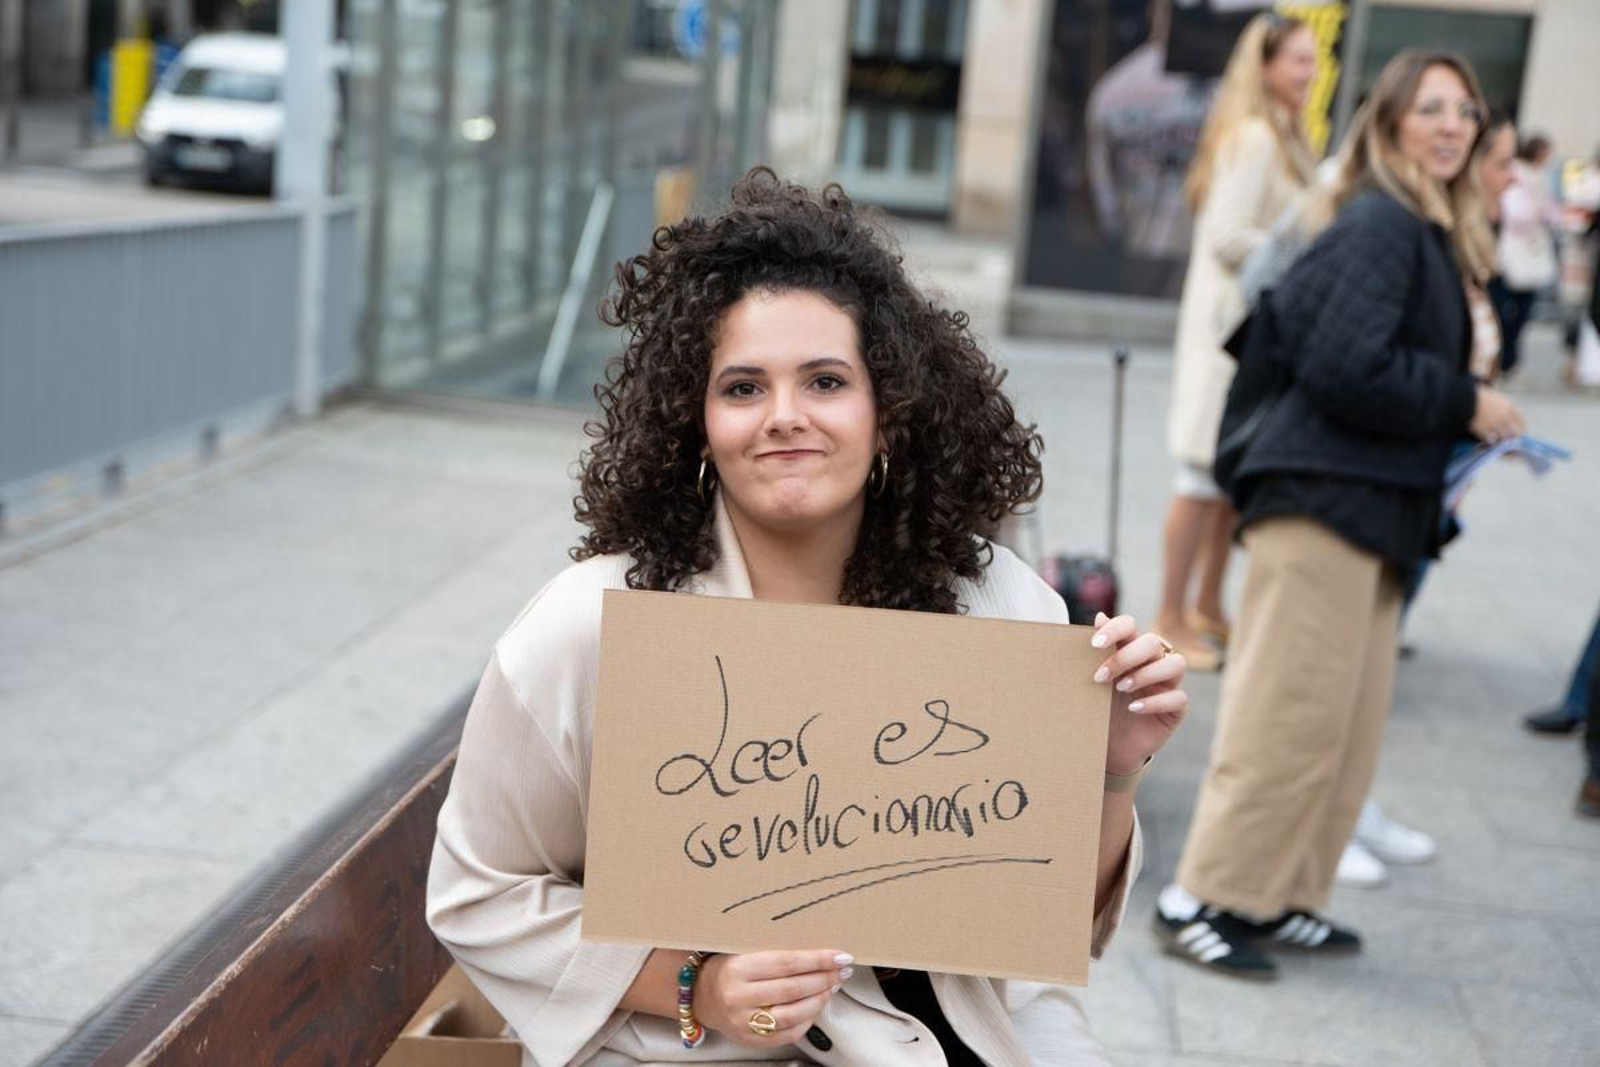 Leer es
revolucionario